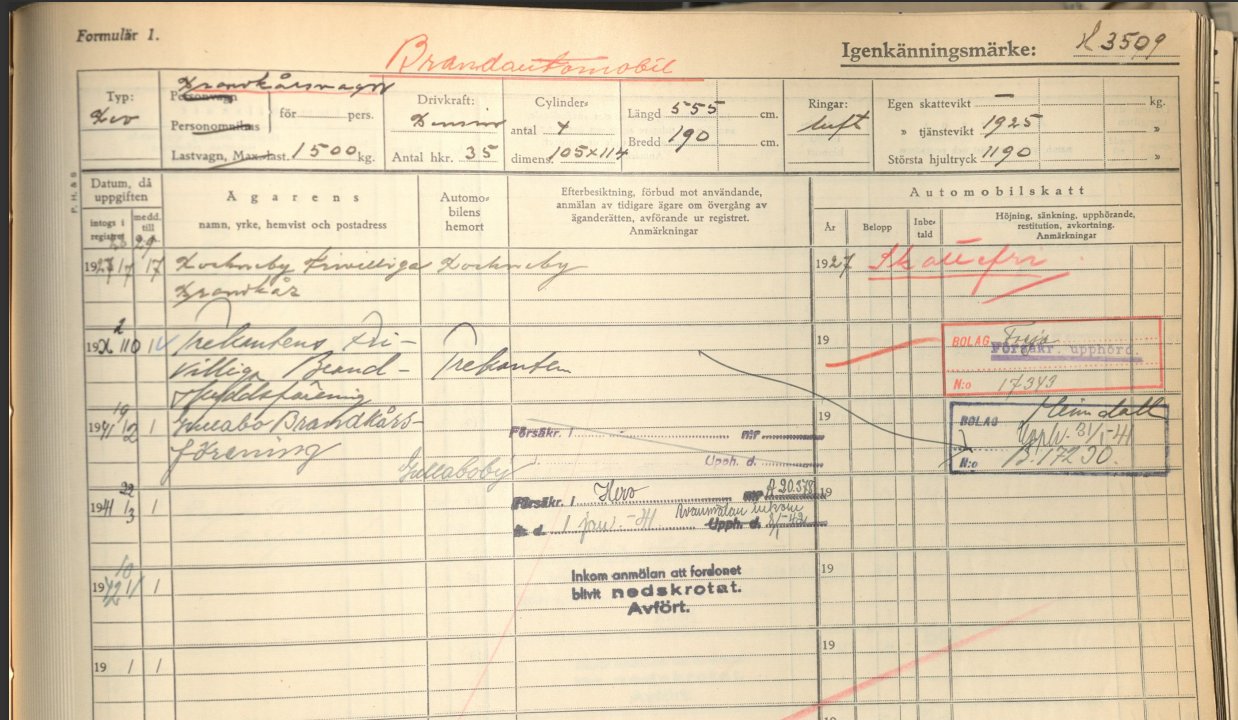 Formulär 1.
Brandautomobil
Igenkännings­märke: H 3509
Typ:
Reo
Brandkårsvagn
Personvagn
Personomnibus
för pers.
Lastvagn, Max.-last. 1500 kg.
Drivkraft:
Bensin
Antal hkr. 35
Cylinder-
antal 4
dimens. 105×114
Längd 555 cm.
Bredd 190 cm.
Ringar:
luft
Egen skattevikt — kg.
» tjänstevikt 1925 »
Största hjultryck 1190 »
P. H. & S
Datum, då uppgiften
intogs i registret
medd. till
Ägarens
namn, yrke, hemvist och postadress
Automo-
bilens
hemort
Efterbesiktning, förbud mot användande,
anmälan av tidigare ägare om övergång av
äganderätten, avförande ur registret.
Anmärkningar
Automobilskatt
År
Belopp
Inbe-
tald
Höjning, sänkning, upphörande,
restitution, avkortning.
Anmärkningar
1927 Frivilliga
Brandkår
1927 Skattefri
19 Trekantens Fri-
villiga Brand-
skyddsförening
Trekanten
19
BOLAG Freja
Försäkr. upphörd.
N:o 17343
1941 19/2 1 Gullabo Brandkårs-
förening
Gullaboby
Försäkr. i nr
Upph. d.
19
BOLAG Heimdall
Upph. 31/1-41
N:o B. 17230.
1941 22/3 1
Försäkr. i Hero nr A 20.578
fr. d. 1 jan. -41 Upph. d.
19
1942 10/1 1
Inkom anmälan att fordonet
blivit nedskrotat.
Avfört.
19
19 / /
19
19